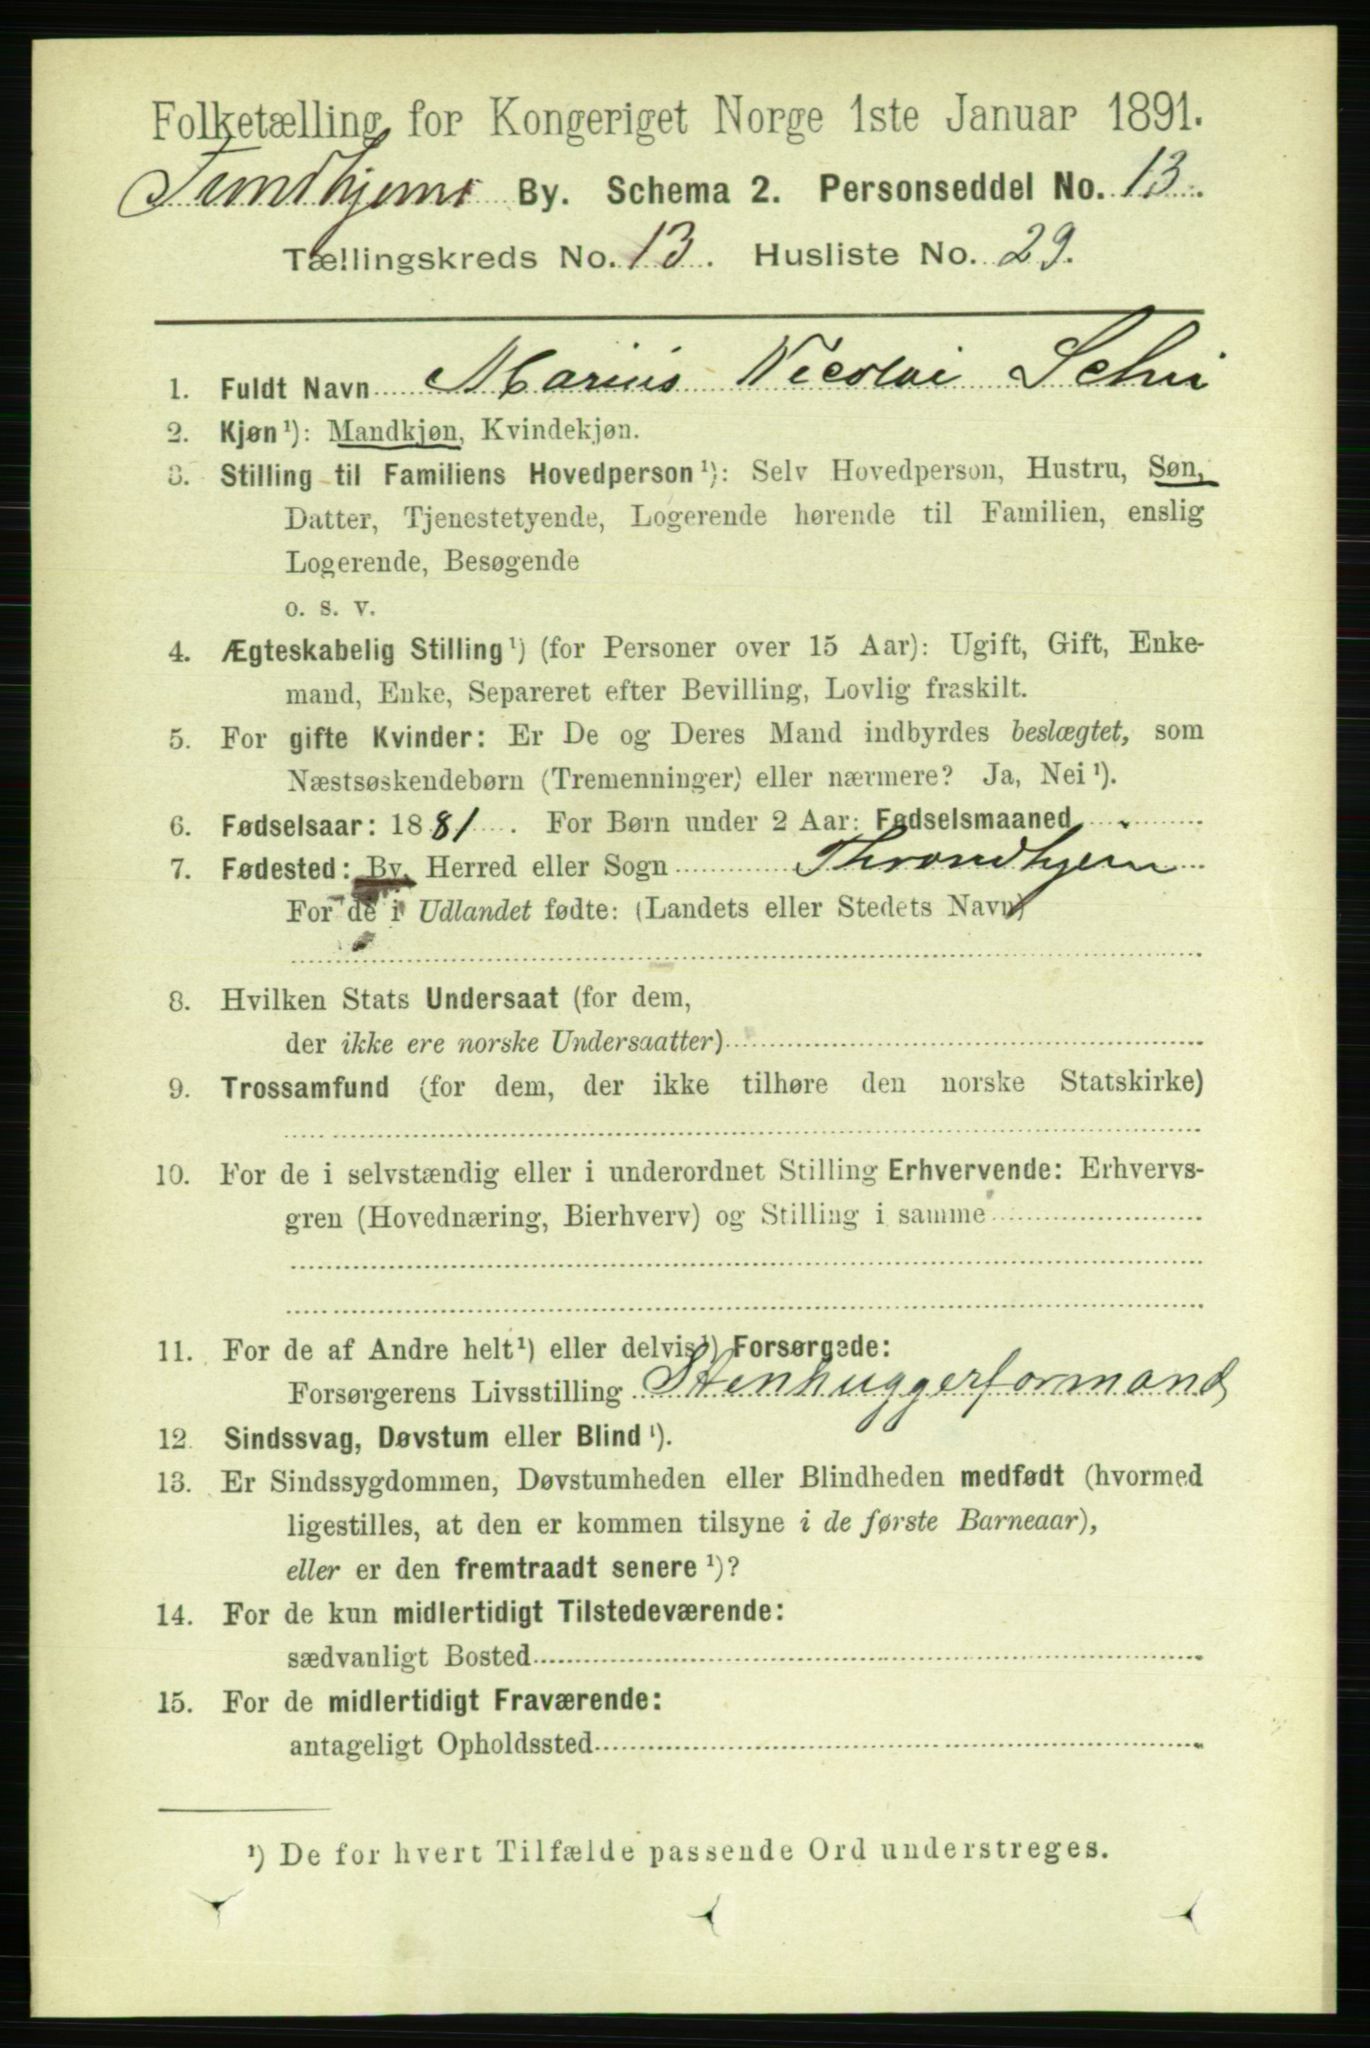 Folketælling for Kongeriget Norge 1ste Januar 1891.
Trondhjems By. Schema 2. Personseddel No. 13.
Tællingskreds No. 13. Husliste No. 29.
1. Fuldt Navn Marius Nicolai Schei
2. Kjøn¹): Mandkjøn, Kvindekjøn.
3. Stilling til Familiens Hovedperson¹): Selv Hovedperson, Hustru, Søn,
Datter, Tjenestetyende, Logerende hørende til Familien, enslig
Logerende, Besøgende
o. s. v.
4. Ægteskabelig Stilling¹) (for Personer over 15 Aar): Ugift, Gift, Enke-
mand, Enke, Separeret efter Bevilling, Lovlig fraskilt.
5. For gifte Kvinder: Er De og Deres Mand indbyrdes beslægtet, som
Næstsøskendebørn (Tremenninger) eller nærmere? Ja, Nei¹).
6. Fødselsaar: 1881. For Børn under 2 Aar: Fødselsmaaned
7. Fødested: By, Herred eller Sogn Throndhjem
For de i Udlandet fødte: (Landets eller Stedets Navn)
8. Hvilken Stats Undersaat (for dem,
der ikke ere norske Undersaatter)
9. Trossamfund (for dem, der ikke tilhøre den norske Statskirke)
10. For de i selvstændig eller i underordnet Stilling Erhvervende: Erhvervs-
gren (Hovednæring, Bierhverv) og Stilling i samme
11. For de af Andre helt¹) eller delvis¹) Forsørgede:
Forsørgerens Livsstilling Stenhuggerformand
12. Sindssvag, Døvstum eller Blind¹).
13. Er Sindssygdommen, Døvstumheden eller Blindheden medfødt (hvormed
ligestilles, at den er kommen tilsyne i de første Barneaar),
eller er den fremtraadt senere¹)?
14. For de kun midlertidigt Tilstedeværende:
sædvanligt Bosted
15. For de midlertidigt Fraværende:
antageligt Opholdssted
¹) De for hvert Tilfælde passende Ord understreges.